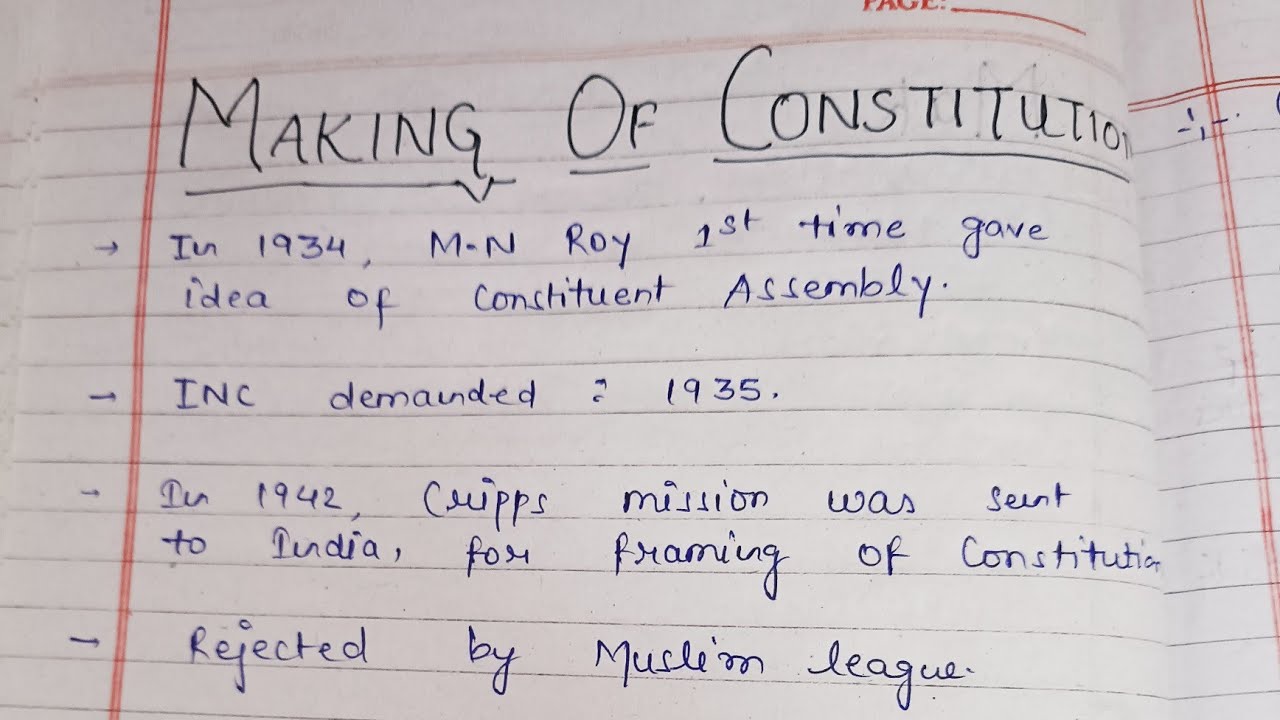 PAGE:
MAKING OF CONSTITUTION :-
→ In 1934, M.N Roy 1st time gave
idea of Constituent Assembly.
→ INC demanded : 1935.
→ In 1942, Cripps mission was sent
to India, for framing of Constitutio
→ Rejected by Muslim league.